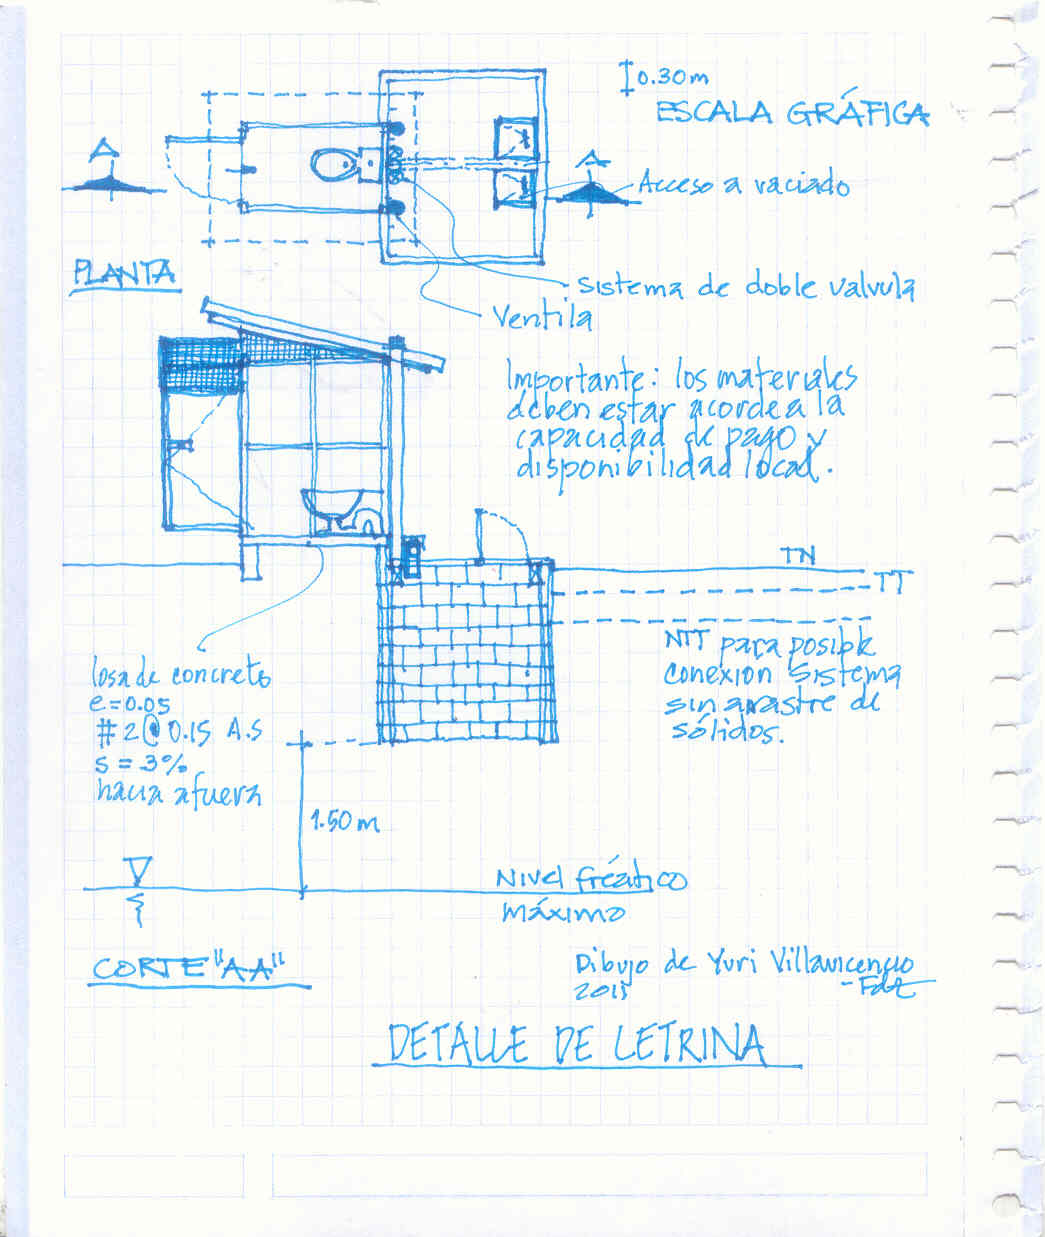 0.30m
ESCALA GRÁFICA
A
A
Acceso a vaciado
PLANTA
Sistema de doble valvula
Ventila
Importante: los materiales
deben estar acorde a la
capacidad de pago y
disponibilidad local.
TN
TT
NTT para posible
conexion sistema
sin arrastre de
sólidos.
losa de concreto
e=0.05
#2@0.15 A.S
s=3%
hacia afuera
1.50m
Nivel freático
máximo
CORTE "A-A"
Dibujo de Yuri Villavicencio
2011
DETALLE DE LETRINA